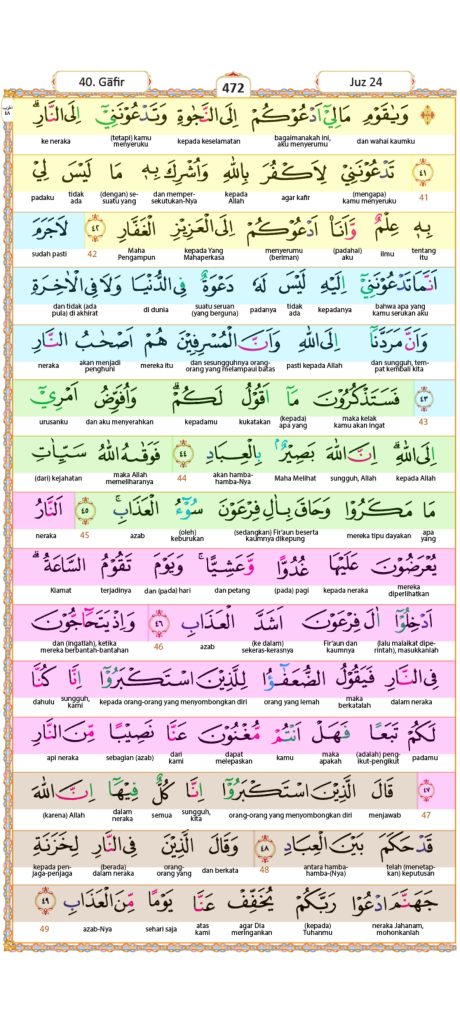 40. Gāfir
472
Juz 24
حزب ٤٨
۞ وَيٰقَوْمِ مَا لِيْٓ اَدْعُوْكُمْ اِلَى النَّجٰوةِ وَتَدْعُوْنَنِيْٓ اِلَى النَّارِۗ
dan wahai kaumku bagaimanakah ini, aku menyerumu kepada keselamatan (tetapi) kamu menyeruku ke neraka
٤١ تَدْعُوْنَنِيْ لِاَكْفُرَ بِاللّٰهِ وَاُشْرِكَ بِهٖ مَا لَيْسَ لِيْ
41 (mengapa) kamu menyeruku agar kafir kepada Allah dan memper-sekutukan-Nya (dengan) se-suatu yang tidak ada padaku
بِهٖ عِلْمٌ وَّاَنَا۠ اَدْعُوْكُمْ اِلَى الْعَزِيْزِ الْغَفَّارِ ٤٢ لَاجَرَمَ
tentang itu ilmu (padahal) aku menyerumu (beriman) kepada Yang Mahaperkasa Maha Pengampun 42 sudah pasti
اَنَّمَا تَدْعُوْنَنِيْٓ اِلَيْهِ لَيْسَ لَهٗ دَعْوَةٌ فِى الدُّنْيَا وَلَا فِى الْاٰخِرَةِ
bahwa apa yang kamu serukan aku kepadanya tidak ada padanya suatu seruan (yang berguna) di dunia dan tidak (ada pula) di akhirat
وَاَنَّ مَرَدَّنَآ اِلَى اللّٰهِ وَاَنَّ الْمُسْرِفِيْنَ هُمْ اَصْحٰبُ النَّارِ
dan sungguh, tem-pat kembali kita pasti kepada Allah dan sesungguhnya orang-orang yang melampaui batas mereka itu akan menjadi penghuni neraka
٤٣ فَسَتَذْكُرُوْنَ مَآ اَقُوْلُ لَكُمْۗ وَاُفَوِّضُ اَمْرِيْٓ
43 maka kelak kamu akan ingat (kepada) apa yang kukatakan kepadamu dan aku menyerahkan urusanku
اِلَى اللّٰهِۗ اِنَّ اللّٰهَ بَصِيْرٌۢ بِالْعِبَادِ ٤٤ فَوَقٰىهُ اللّٰهُ سَيِّاٰتِ
kepada Allah sungguh, Allah Maha Melihat akan hamba-hamba-Nya 44 maka Allah memeliharanya (dari) kejahatan
مَا مَكَرُوْا وَحَاقَ بِاٰلِ فِرْعَوْنَ سُوْۤءُ الْعَذَابِۚ ٤٥ اَلنَّارُ
apa yang mereka tipu dayakan (sedangkan) Fir'aun beserta kaumnya dikepung (oleh) keburukan azab 45 neraka
يُعْرَضُوْنَ عَلَيْهَا غُدُوًّا وَّعَشِيًّاۚ وَيَوْمَ تَقُوْمُ السَّاعَةُۗ
mereka diperlihatkan kepada neraka (pada) pagi dan petang dan (pada) hari terjadinya Kiamat
اَدْخِلُوْٓا اٰلَ فِرْعَوْنَ اَشَدَّ الْعَذَابِ ٤٦ وَاِذْ يَتَحَاۤجُّوْنَ
(lalu malaikat dipe-rintah), masukkanlah Fir'aun dan kaumnya (ke dalam) sekeras-kerasnya azab 46 dan (ingatlah), ketika mereka berbantah-bantahan
فِى النَّارِ فَيَقُوْلُ الضُّعَفٰۤؤُا لِلَّذِيْنَ اسْتَكْبَرُوْٓا اِنَّا كُنَّا
dalam neraka maka berkatalah orang yang lemah kepada orang-orang yang menyombongkan diri sungguh, kami dahulu
لَكُمْ تَبَعًا فَهَلْ اَنْتُمْ مُّغْنُوْنَ عَنَّا نَصِيْبًا مِّنَ النَّارِ
padamu (adalah) peng-ikut-pengikut maka apakah kamu dapat melepaskan dari kami sebagian (azab) api neraka
٤٧ قَالَ الَّذِيْنَ اسْتَكْبَرُوْٓا اِنَّا كُلٌّ فِيْهَآ اِنَّ اللّٰهَ
47 menjawab orang-orang yang menyombongkan diri sungguh, kita semua dalam neraka (karena) Allah
قَدْ حَكَمَ بَيْنَ الْعِبَادِ ٤٨ وَقَالَ الَّذِيْنَ فِى النَّارِ لِخَزَنَةِ
telah (menetap-kan) keputusan antara hamba-hamba-(Nya) 48 dan berkata orang-orang yang (berada) dalam neraka kepada pen-jaga-penjaga
جَهَنَّمَ ادْعُوْا رَبَّكُمْ يُخَفِّفْ عَنَّا يَوْمًا مِّنَ الْعَذَابِ ٤٩
neraka Jahanam, mohonkanlah (kepada) Tuhanmu agar Dia meringankan atas kami sehari saja azab-Nya 49